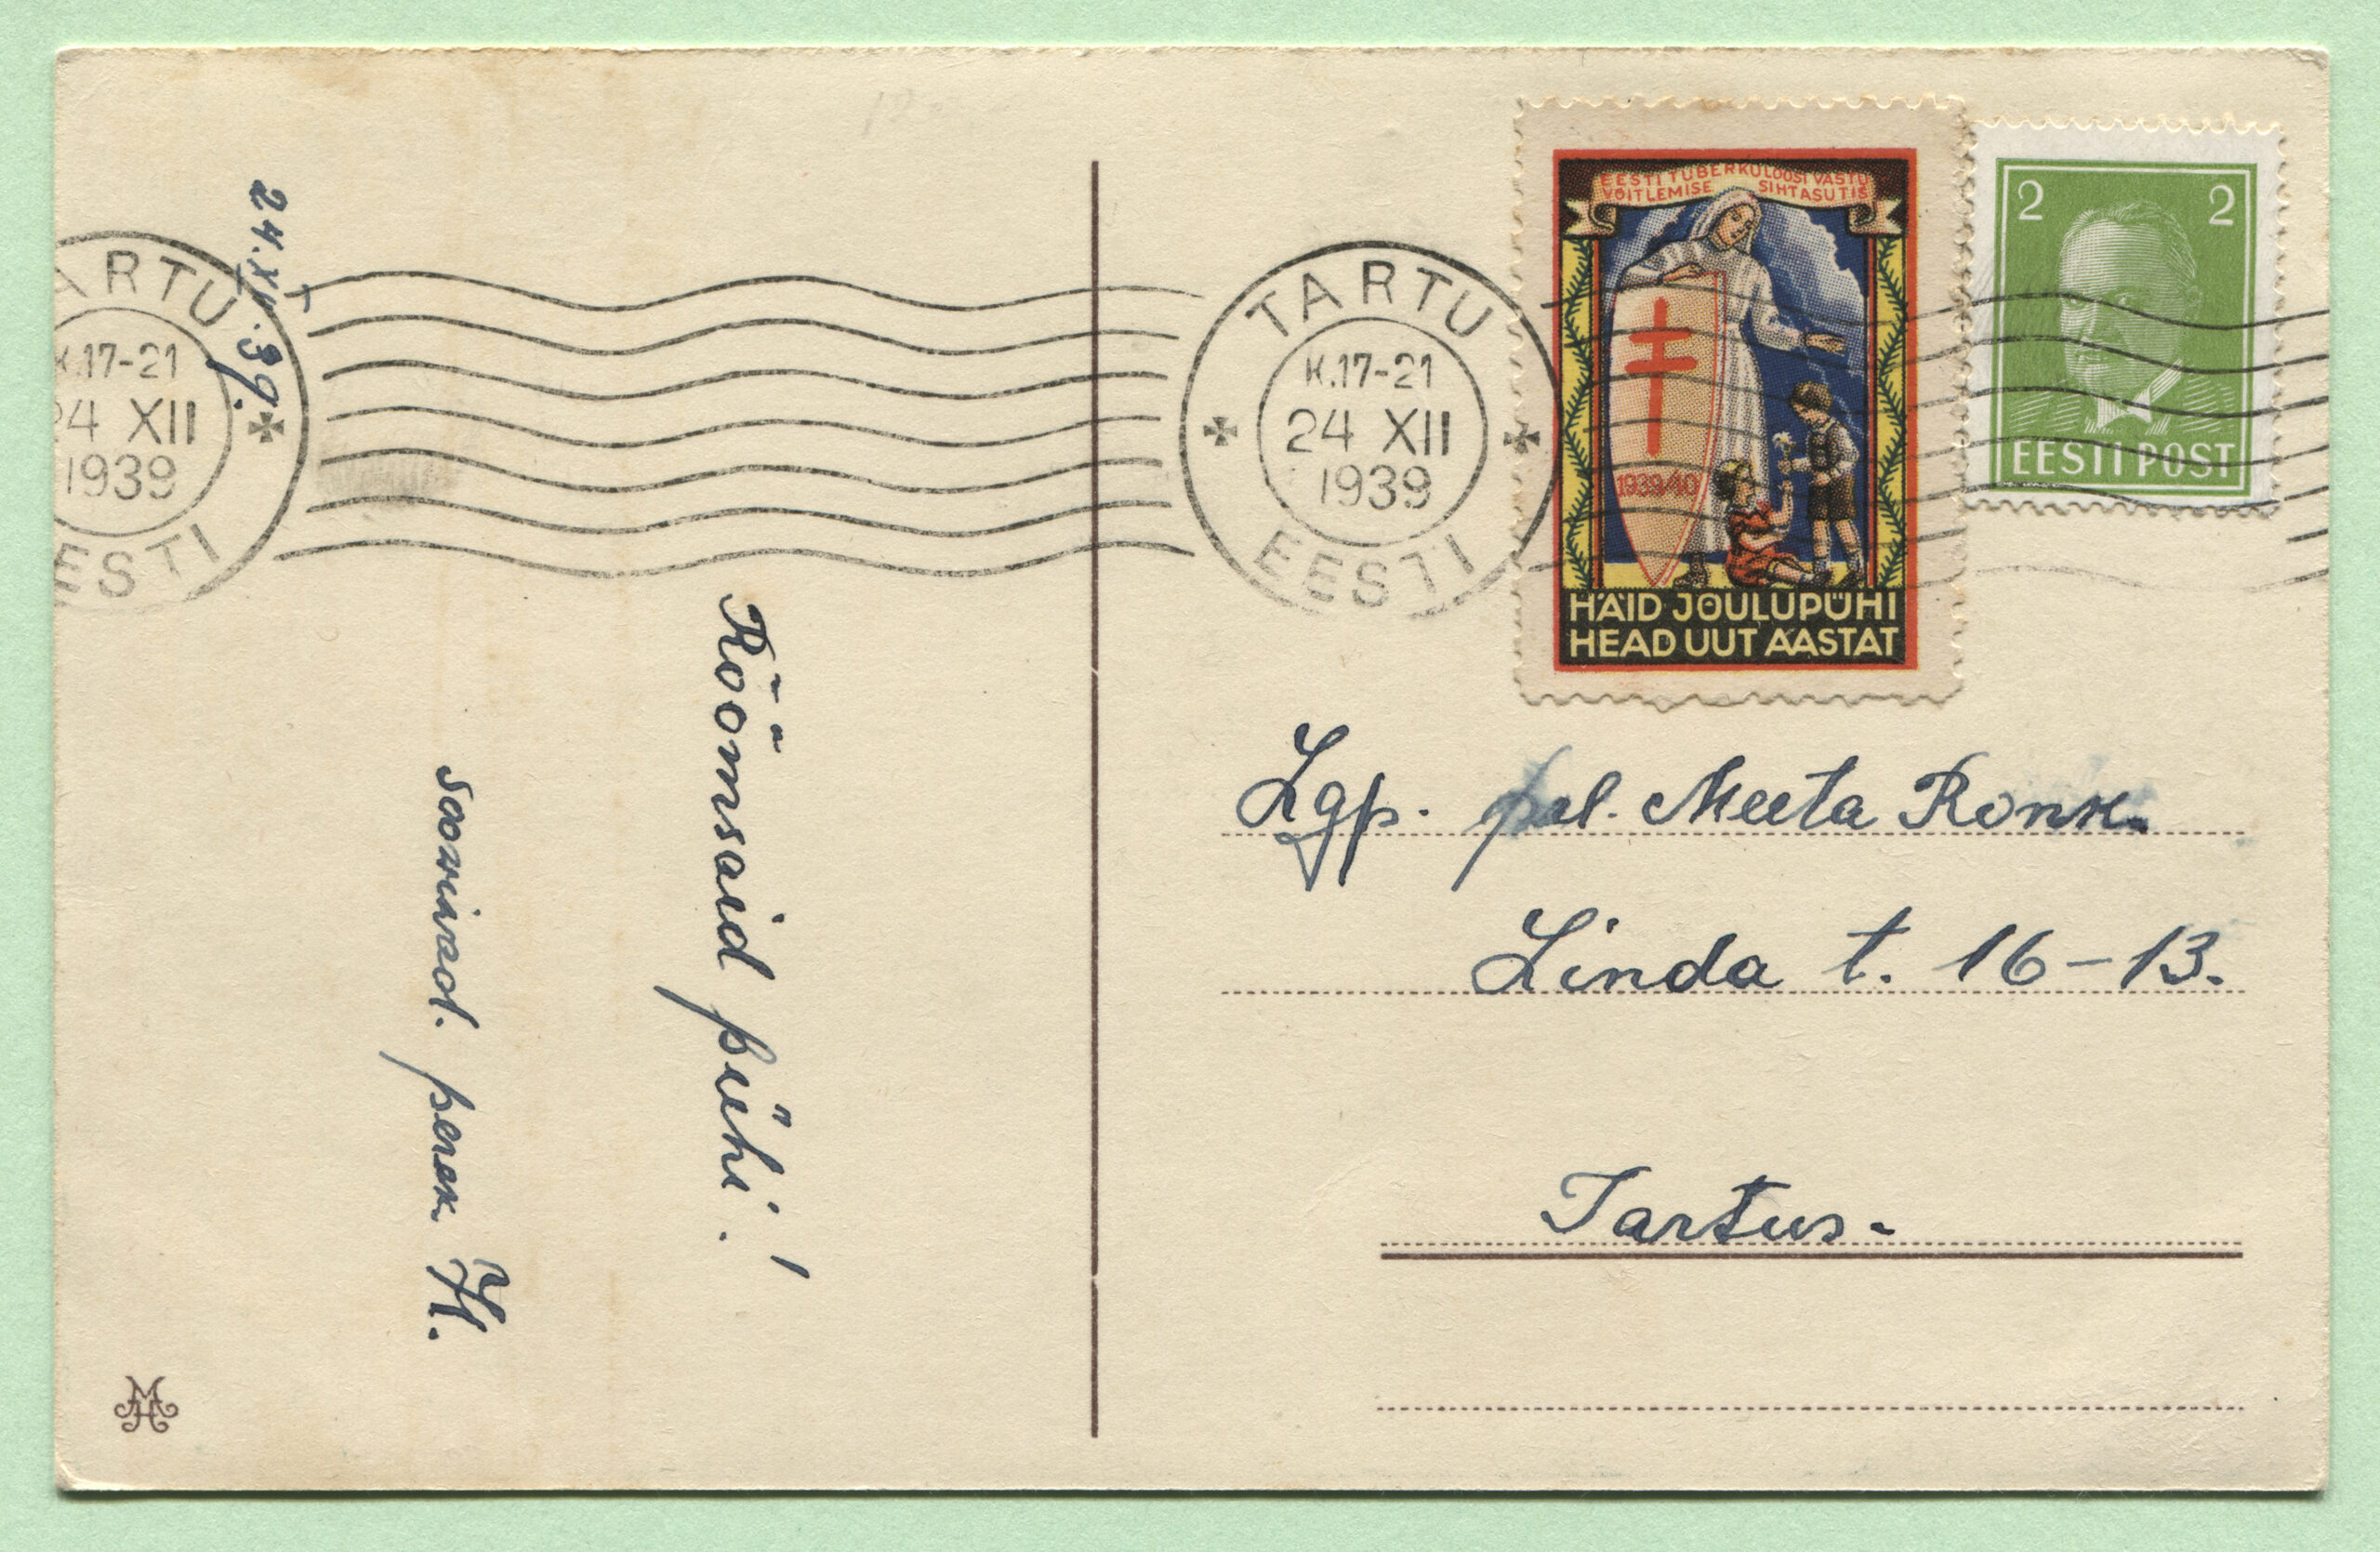 24.XII.39.
TARTU
K.17-21
24 XII
1939
EESTI
Rõõmsaid pühi!
soovivad. perek. H.
MH
TARTU
K.17-21
24 XII
1939
EESTI
EESTI TUBERKULOOSI VASTU
VÕITLEMISE SIHTASUTIS
1939/40
HÄID JÕULUPÜHI
HEAD UUT AASTAT
2 2
EESTI POST
Lgp. prl. Meeta Ronk.
Linda t. 16-13.
Tartus-